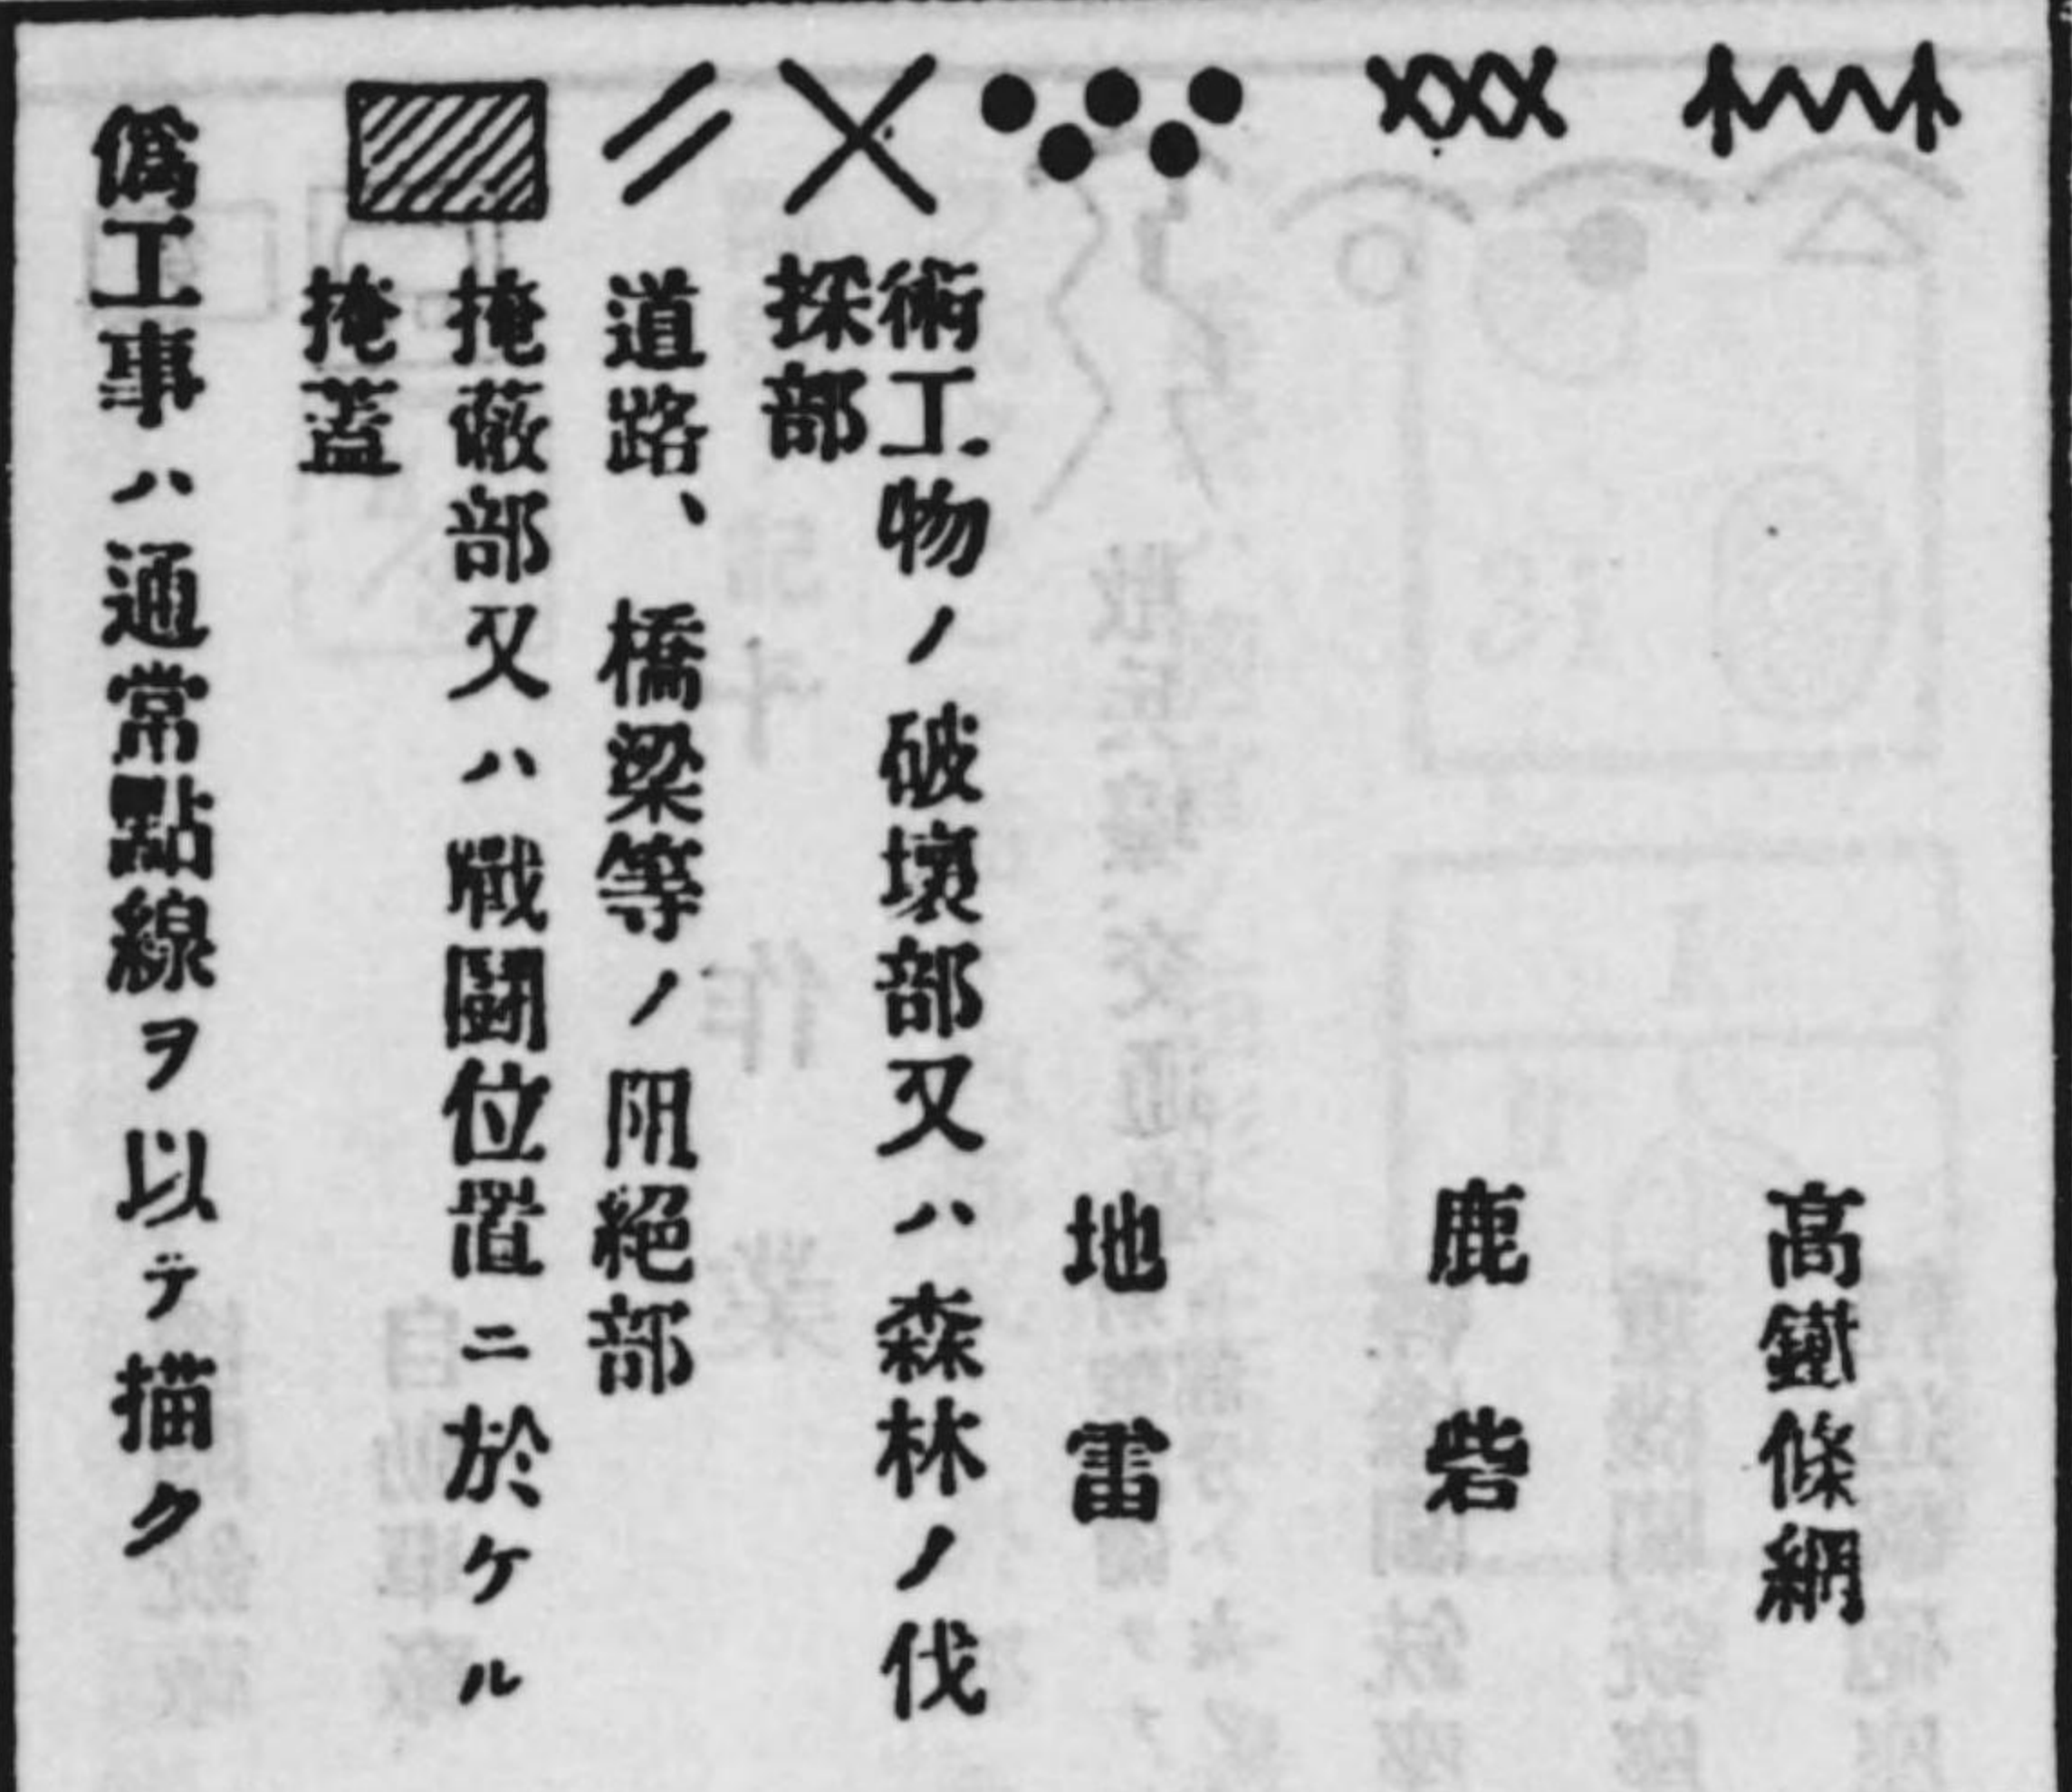 高鐵條網
鹿砦
地雷
術工物ノ破壞部又ハ森林ノ伐
採部
道路、橋梁等ノ阻絕部
掩蔽部又ハ戰鬪位置ニ於ケル
掩蓋
僞工事ハ通常點線ヲ以テ描ク